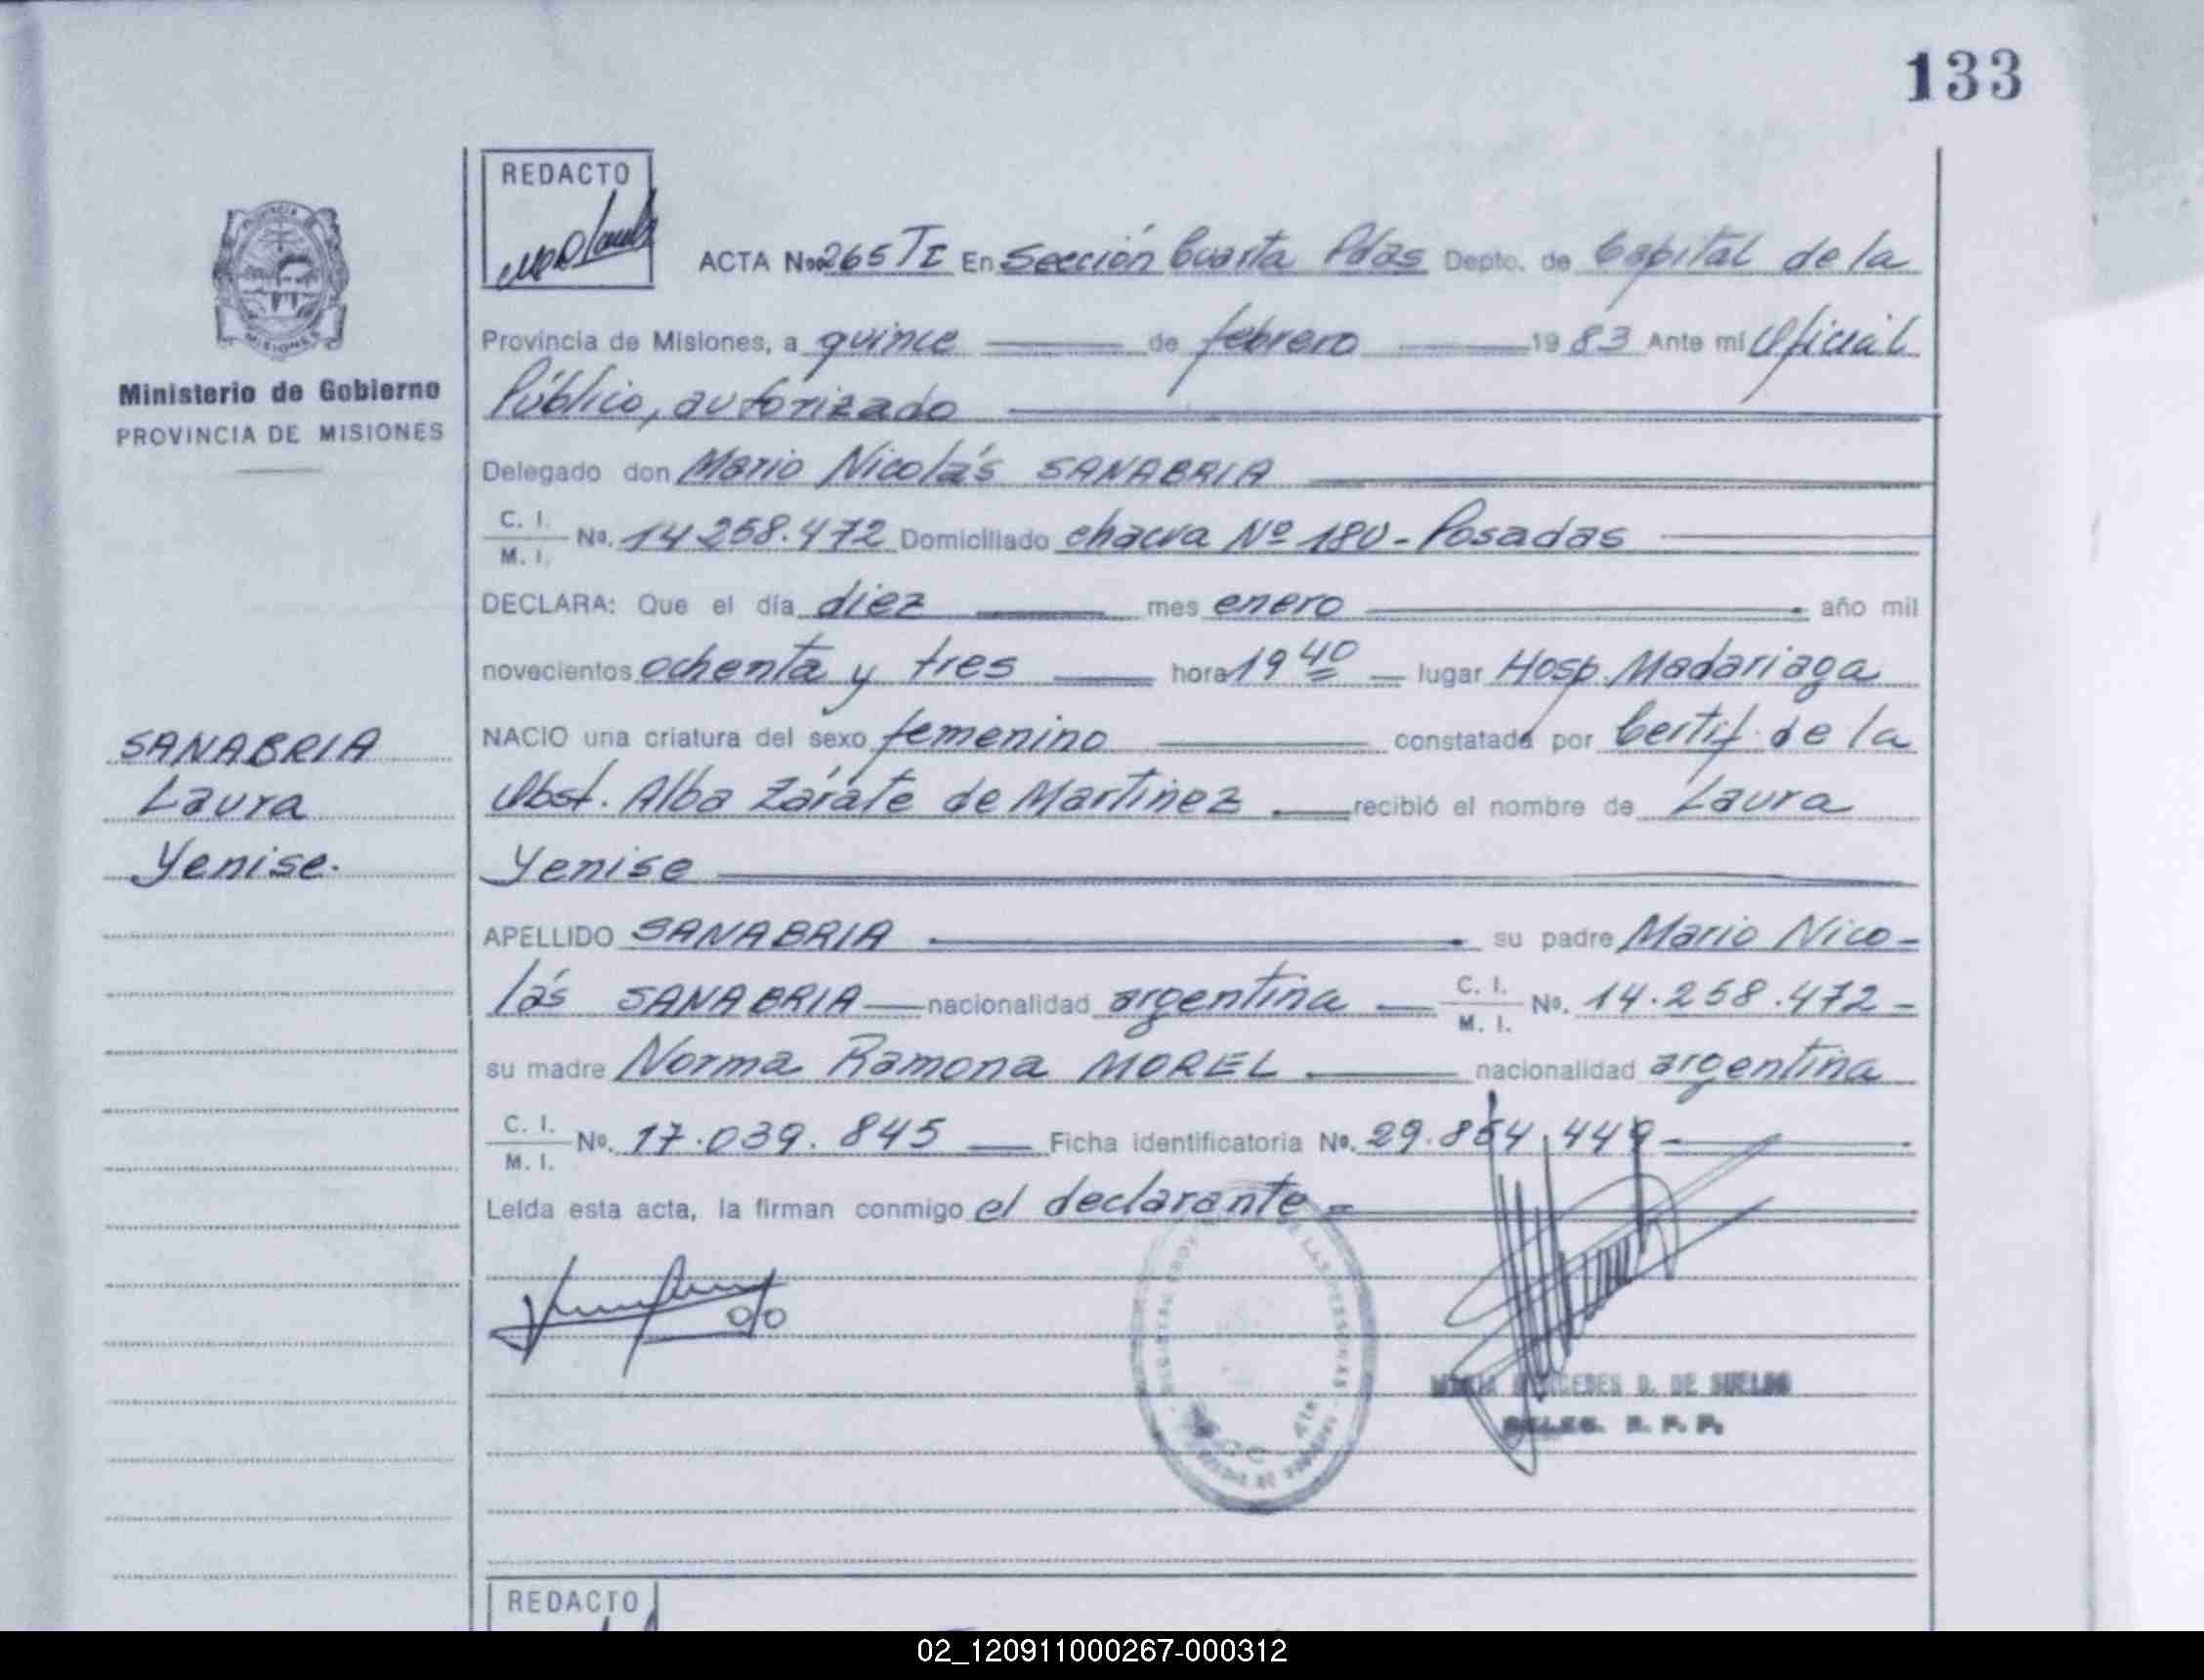 133
REDACTO
ACTA No. 265 TI En Sección Cuarta Pdas Depto. de Capital de la
Provincia de Misiones, a quince de febrero 1983 Ante mi Oficial
Público, autorizado
Ministerio de Gobierno
PROVINCIA DE MISIONES
Delegado don Mario Nicolás SANABRIA
C. I. M. I. No. 14 258.472 Domiciliado chacra Nº 180 - Posadas
DECLARA: Que el día diez mes enero año mil
novecientos ochenta y tres hora 19 40 lugar Hosp. Madariaga
SANABRIA
NACIO una criatura del sexo femenino constatada por Certif. de la
Laura
Obst. Alba Zárate de Martinez recibió el nombre de Laura
Yenise.
Yenise
APELLIDO SANABRIA su padre Mario Nico-
lás SANABRIA nacionalidad argentina C. I. M. I. No. 14.258.472-
su madre Norma Ramona MOREL nacionalidad argentina
C. I. M. I. No. 17.039.845 Ficha identificatoria No. 29.864.449-
Leída esta acta, la firman conmigo el declarante
D. DE
R. P. P.
REDACTO
02_120911000267-000312